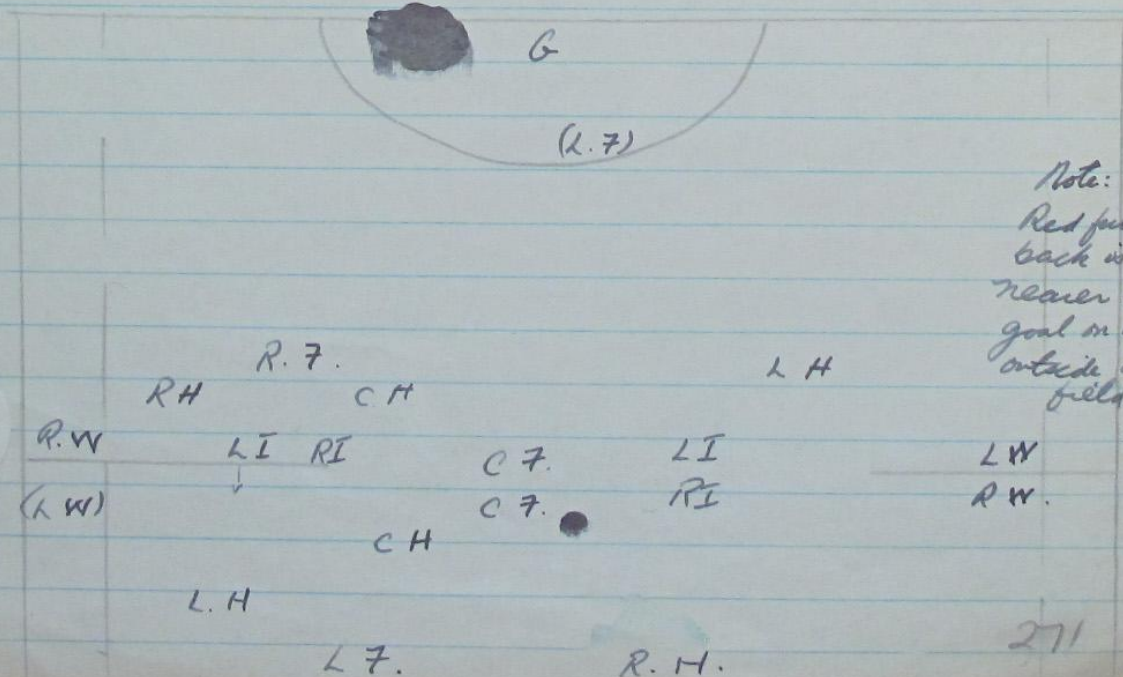 G
(L.F)
Note:
Red fu
back is
nearer
goal on
outside
field
R. F.
L H
R H
C H
R.W
L I
R I
C F.
L I
L W
(L W)
C F.
R I
R W.
C H
L. H
271
L F.
R. H.